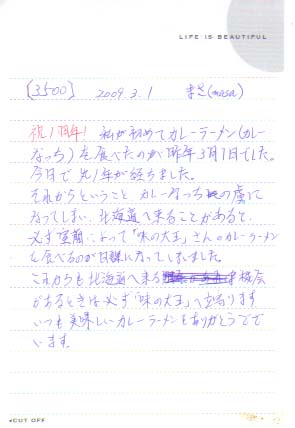 LIFE IS BEAUTIFUL
[3500] 2009.3.1 (masa)
祝1周年! 私が初めてカレーラーメン(カレー
なっち)を食べたのが昨年3月1日でした。
今日で丸1年が経ちました。
それからということ カレーなっちの虜に
なってしまい、北海道へ来ることがあると、
必ず室蘭によって「味の大王」さんのカレーラーメン
を食べるのが日課になってしまいました。
これからも北海道へ来る機会
があるときは必ず「味の大王」へ立寄ります
いつも美味しいカレーラーメンをありがとうござ
います。
◂CUT OFF